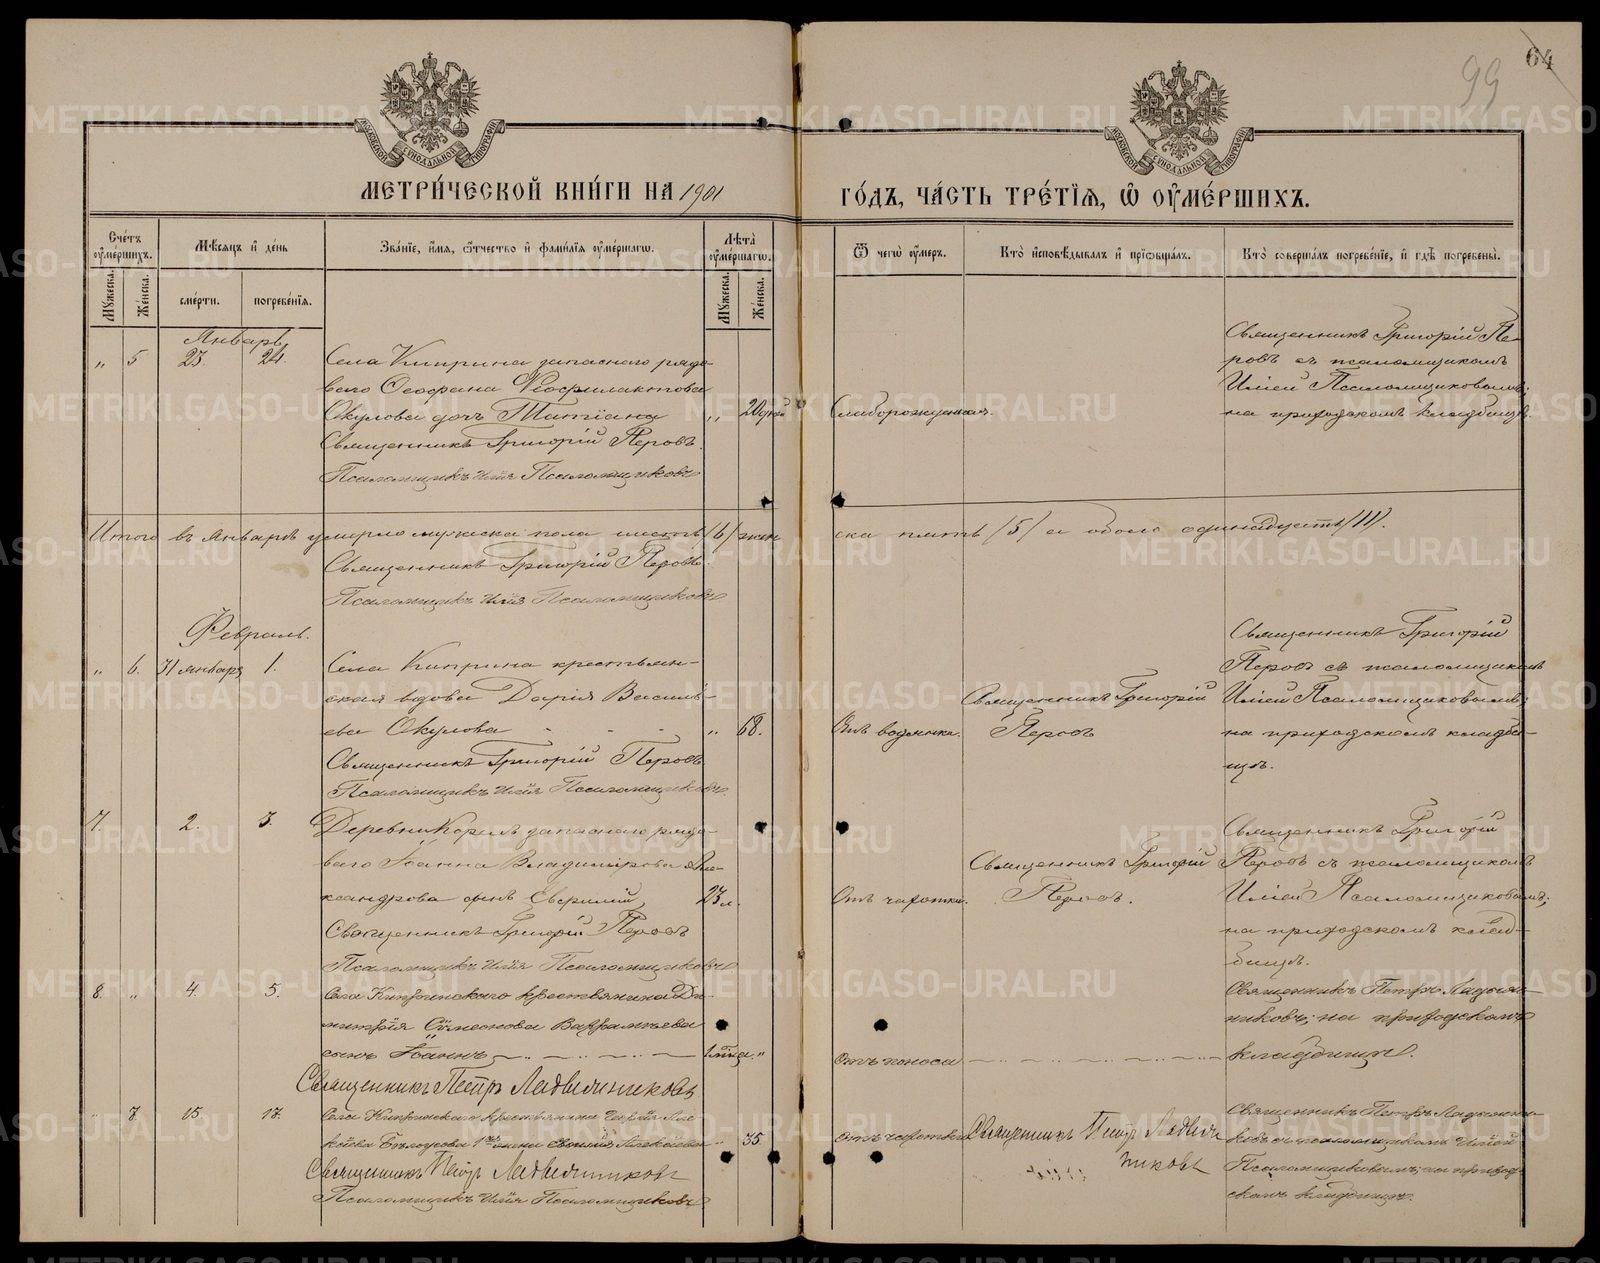 99
64
МОСКОВСКОЙ СѴНОДАЛЬНОЙ ТИПОГРАФІИ
МОСКОВСКОЙ СѴНОДАЛЬНОЙ ТИПОГРАФІИ
МЕТРИ́ЧЕСКОЙ КНИ́ГИ НА 1901
ГО́ДЪ, ЧА́СТЬ ТРЕ́ТІЯ, Ѡ ОУМЕ́РШИХЪ.
Сче́тъ оуме́ршихъ.
Мѣсяцъ и де́нь
Зва́ніе, и́мя, ѻ́тчество и фами́лія оуме́ршаго.
Лѣта̀ оуме́ршаго.
Ѿ чегѡ̀ оу́меръ.
Кто̀ исповѣ́дывалъ и пріѡбща́лъ.
Кто̀ соверша́лъ погребе́ніе, и гдѣ̀ погребены̀.
Мꙋжеска.
Же́нска.
сме́рти.
погребе́нія.
Мꙋжеска.
Же́нска.
Январь
„ 5 23. 24.
Села Киприна запаснаго рядо-
ваго Ѳеофана Ѳеофилактова
Окулова дочь Татіана „ 20 дней
Священникъ Григорій Перовъ.
Псаломщикъ Илія Псаломщиковъ
Слаборожденная.
Священникъ Григорій Пе-
ровъ съ псаломщикомъ
Иліей Псаломщиковымъ;
на приходскомъ кладбищѣ.
Итого въ январѣ умерло мужеска пола шесть /6/ жен
ска пять /5/ а обоего одинадцать /11/.
Священникъ Григорій Перовъ.
Псаломщикъ Илія Псаломщиковъ
Февраль.
„ 6. 31 января 1.
Села Киприна крестьян-
ская вдова Дарія Василь-
ева Окулова „ 68.
Священникъ Григорій Перовъ
Псаломщикъ Илія Псаломщиковъ
Отъ водянки.
Священникъ Григорій
Перовъ
Священникъ Григорій
Перовъ съ псаломщикомъ
Иліей Псаломщиковымъ;
на приходскомъ кладби-
щѣ.
7. 2. 3.
Деревни запаснаго рядо-
ваго Іоанна Владимірова Але-
ксандрова сынъ 23 л.
Священникъ Григорій Перовъ
Псаломщикъ Илія Псаломщиковъ
Отъ чахотки.
Священникъ Григорій
Перовъ.
Священникъ Григорій
Перовъ съ псаломщикомъ
Иліей Псаломщиковымъ;
на приходскомъ клад-
бищѣ.
8. „ 4. 5.
Села Кипринскаго крестьянина Ди-
митрія Сѵмеонова
сынъ Іоаннъ „
Священникъ Петръ
отъ поноса
Священникъ Петръ
на приходскомъ
кладбищѣ.
„ 7. 15. 17.
Села Кипринскаго крестьянина
Бѣлоусова „ 35.
Священникъ Петръ
Псаломщикъ Илія Псаломщиковъ
отъ чахотки
Священникъ Петръ
Священникъ Петръ
съ псаломщикомъ Иліей
Псаломщиковымъ; на приход-
скомъ кладбищѣ.
METRIKI.GASO-URAL.RU